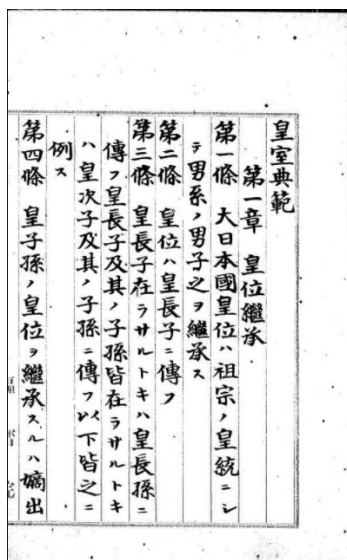 皇室典範
第一章 皇位繼承
第一條 大日本國皇位ハ祖宗ノ皇統ニシ
テ男系ノ男子之ヲ繼承ス
第二條 皇位ハ皇長子ニ傳フ
第三條 皇長子在ラサルトキハ皇長孫ニ
傳フ皇長子及其ノ子孫皆在ラサルトキ
ハ皇次子及其ノ子孫ニ傳フ以下皆之ニ
例ス
第四條 皇子孫ノ皇位ヲ繼承スルハ嫡出